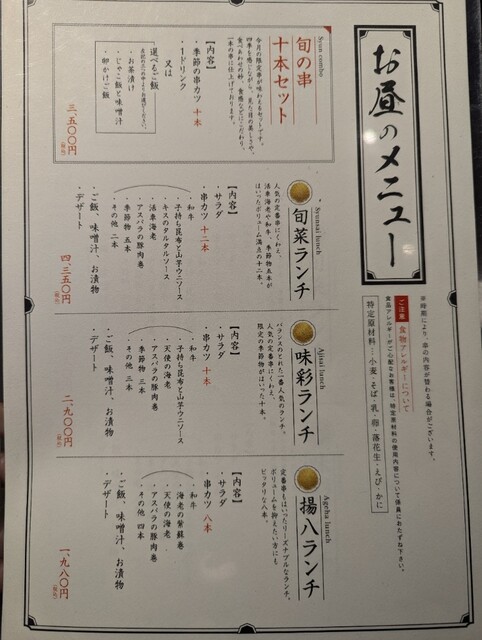 お昼のメニュー
※時期により、串の内容が替わる場合がございます。
ご注意 食物アレルギーについて
食品アレルギーがご心配なお客様は、特定原材料の使用内容について係員におたずね下さい。
特定原材料…小麦・そば・乳・卵・落花生・えび・かに
Syun combo
旬の串
十本セット
今月の限定串が味わえるセットです。
四季を感じながら、見た目の美しさや、
食べあわせの妙、食感などにこだわり、
一本の串に仕上げております。
【内容】
・季節の串カツ 十本
・1ドリンク
又は
選べるご飯
・お茶漬け
・じゃこ飯と味噌汁
・卵かけご飯
三、五〇〇円
(税込)
Syunsai lunch
旬菜ランチ
人気の定番串にくわえ、
法華海老や和牛、季節物五本が
はいったボリューム満点の十二本。
【内容】
・サラダ
・串カツ 十二本
・和牛
・子持ち昆布と山芋ウニソース
・キスのタルタルソース
・法華海老
・アスパラの豚肉巻
・季節物 五本
・その他 二本
・ご飯、味噌汁、お漬物
・デザート
四、三五〇円
(税込)
Ajisai lunch
味彩ランチ
バランスのとれた一番人気のランチ。
人気の定番串にくわえ、
限定の季節物がはいった十本。
【内容】
・サラダ
・串カツ 十本
・和牛
・子持ち昆布と山芋ウニソース
・天使の海老
・アスパラの豚肉巻
・季節物 三本
・その他 三本
・ご飯、味噌汁、お漬物
・デザート
二、九〇〇円
(税込)
Ageha lunch
揚八ランチ
定番串もはいったリーズナブルなランチ。
ボリュームを抑えたい方にも
ピッタリな八本。
【内容】
・サラダ
・串カツ 八本
・和牛
・海老の紫蘇巻
・天使の海老
・アスパラの豚肉巻
・その他 四本
・ご飯、味噌汁、お漬物
・デザート
一、九八〇円
(税込)